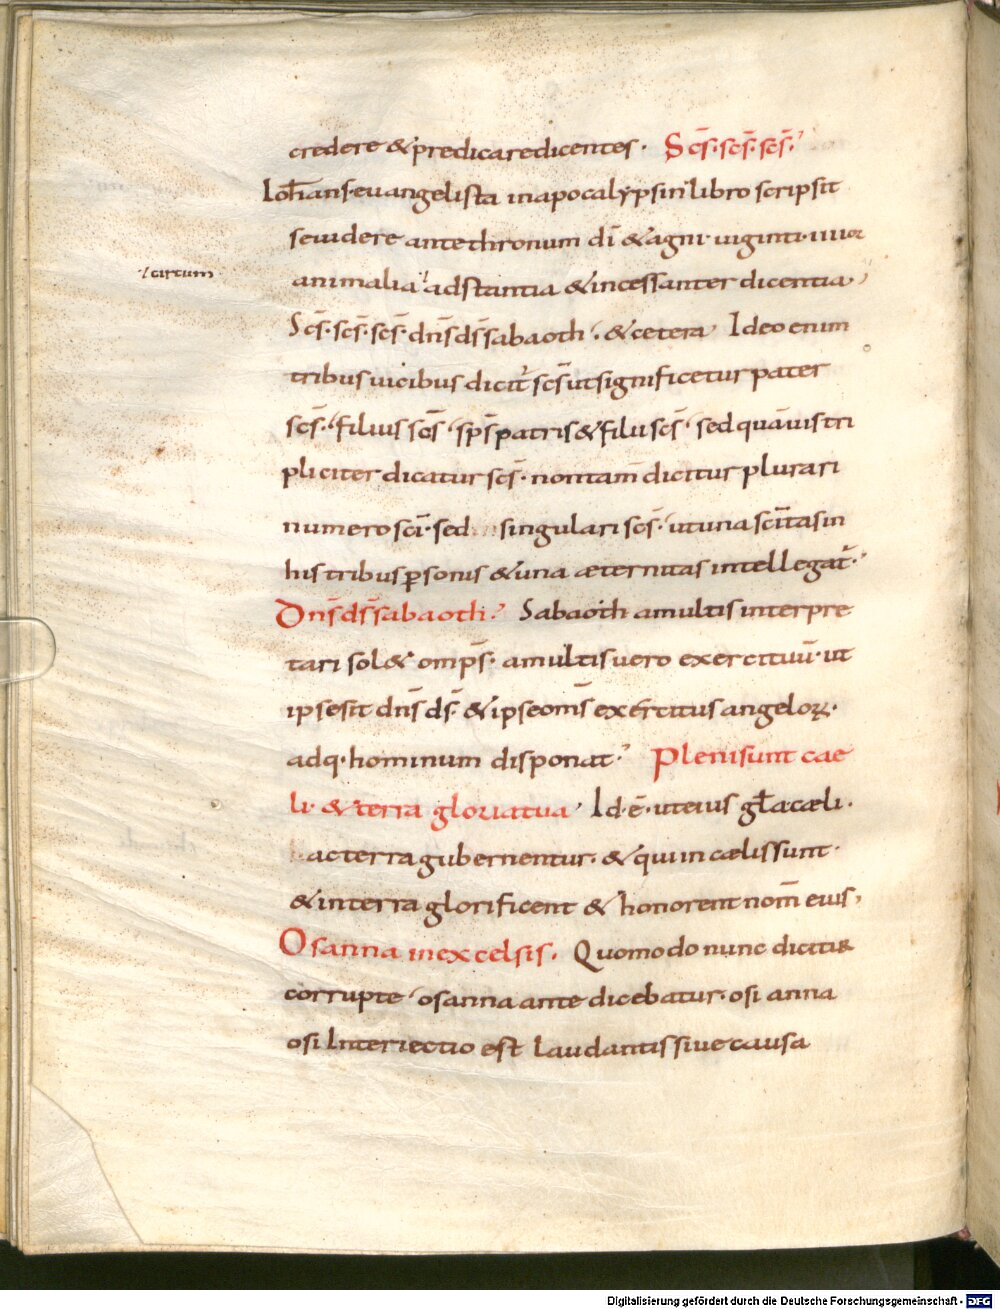 credere & predicare dicentes. Scs̄. scs̄. scs̄.
Ioh̄ans. euangelista in apocalypsin libro scripsit
se uidere ante thronum dī & agni. uiginti. iiiior
animalia adstantia & incessanter dicentia.
./ circum
Scs̄. scs̄. scs̄. dn̄s ds̄ sabaoth. & cetera. Ideo enim
tribus uicibus dicit̄ scs̄ ut significetur pater
scs̄. filius scs̄. sps̄ patris & filii scs̄. sed quāuis tri
pliciter dicatur scs̄. non tam̄ dicitur plurari
numero scī. sed singulari scs̄. ut una scītas in
his tribus ꝑsonis & una æternitas intellegat̄.
Dn̄s ds̄ sabaoth. Sabaoth a multis interpre
tari sol& omps̄. a multis uero exercituū. ut
ipse sit dn̄s ds̄. & ipse om̄s exercitus angeloꝝ.
adq. hominum disponat. Pleni sunt cae
li. & terra gloria tua. Id. ē. ut eius gl̄a cæli.
ac terra gubernentur. & qui in cælis sunt.
& in terra glorificent & honorent nom̄ eius.
Osanna in excelsis. Quomodo nunc dicitur
corrupte osanna ante dicebatur. osi anna
osi Interiectio est laudantis siue causa
Digitalisierung gefördert durch die Deutsche Forschungsgemeinschaft - DFG